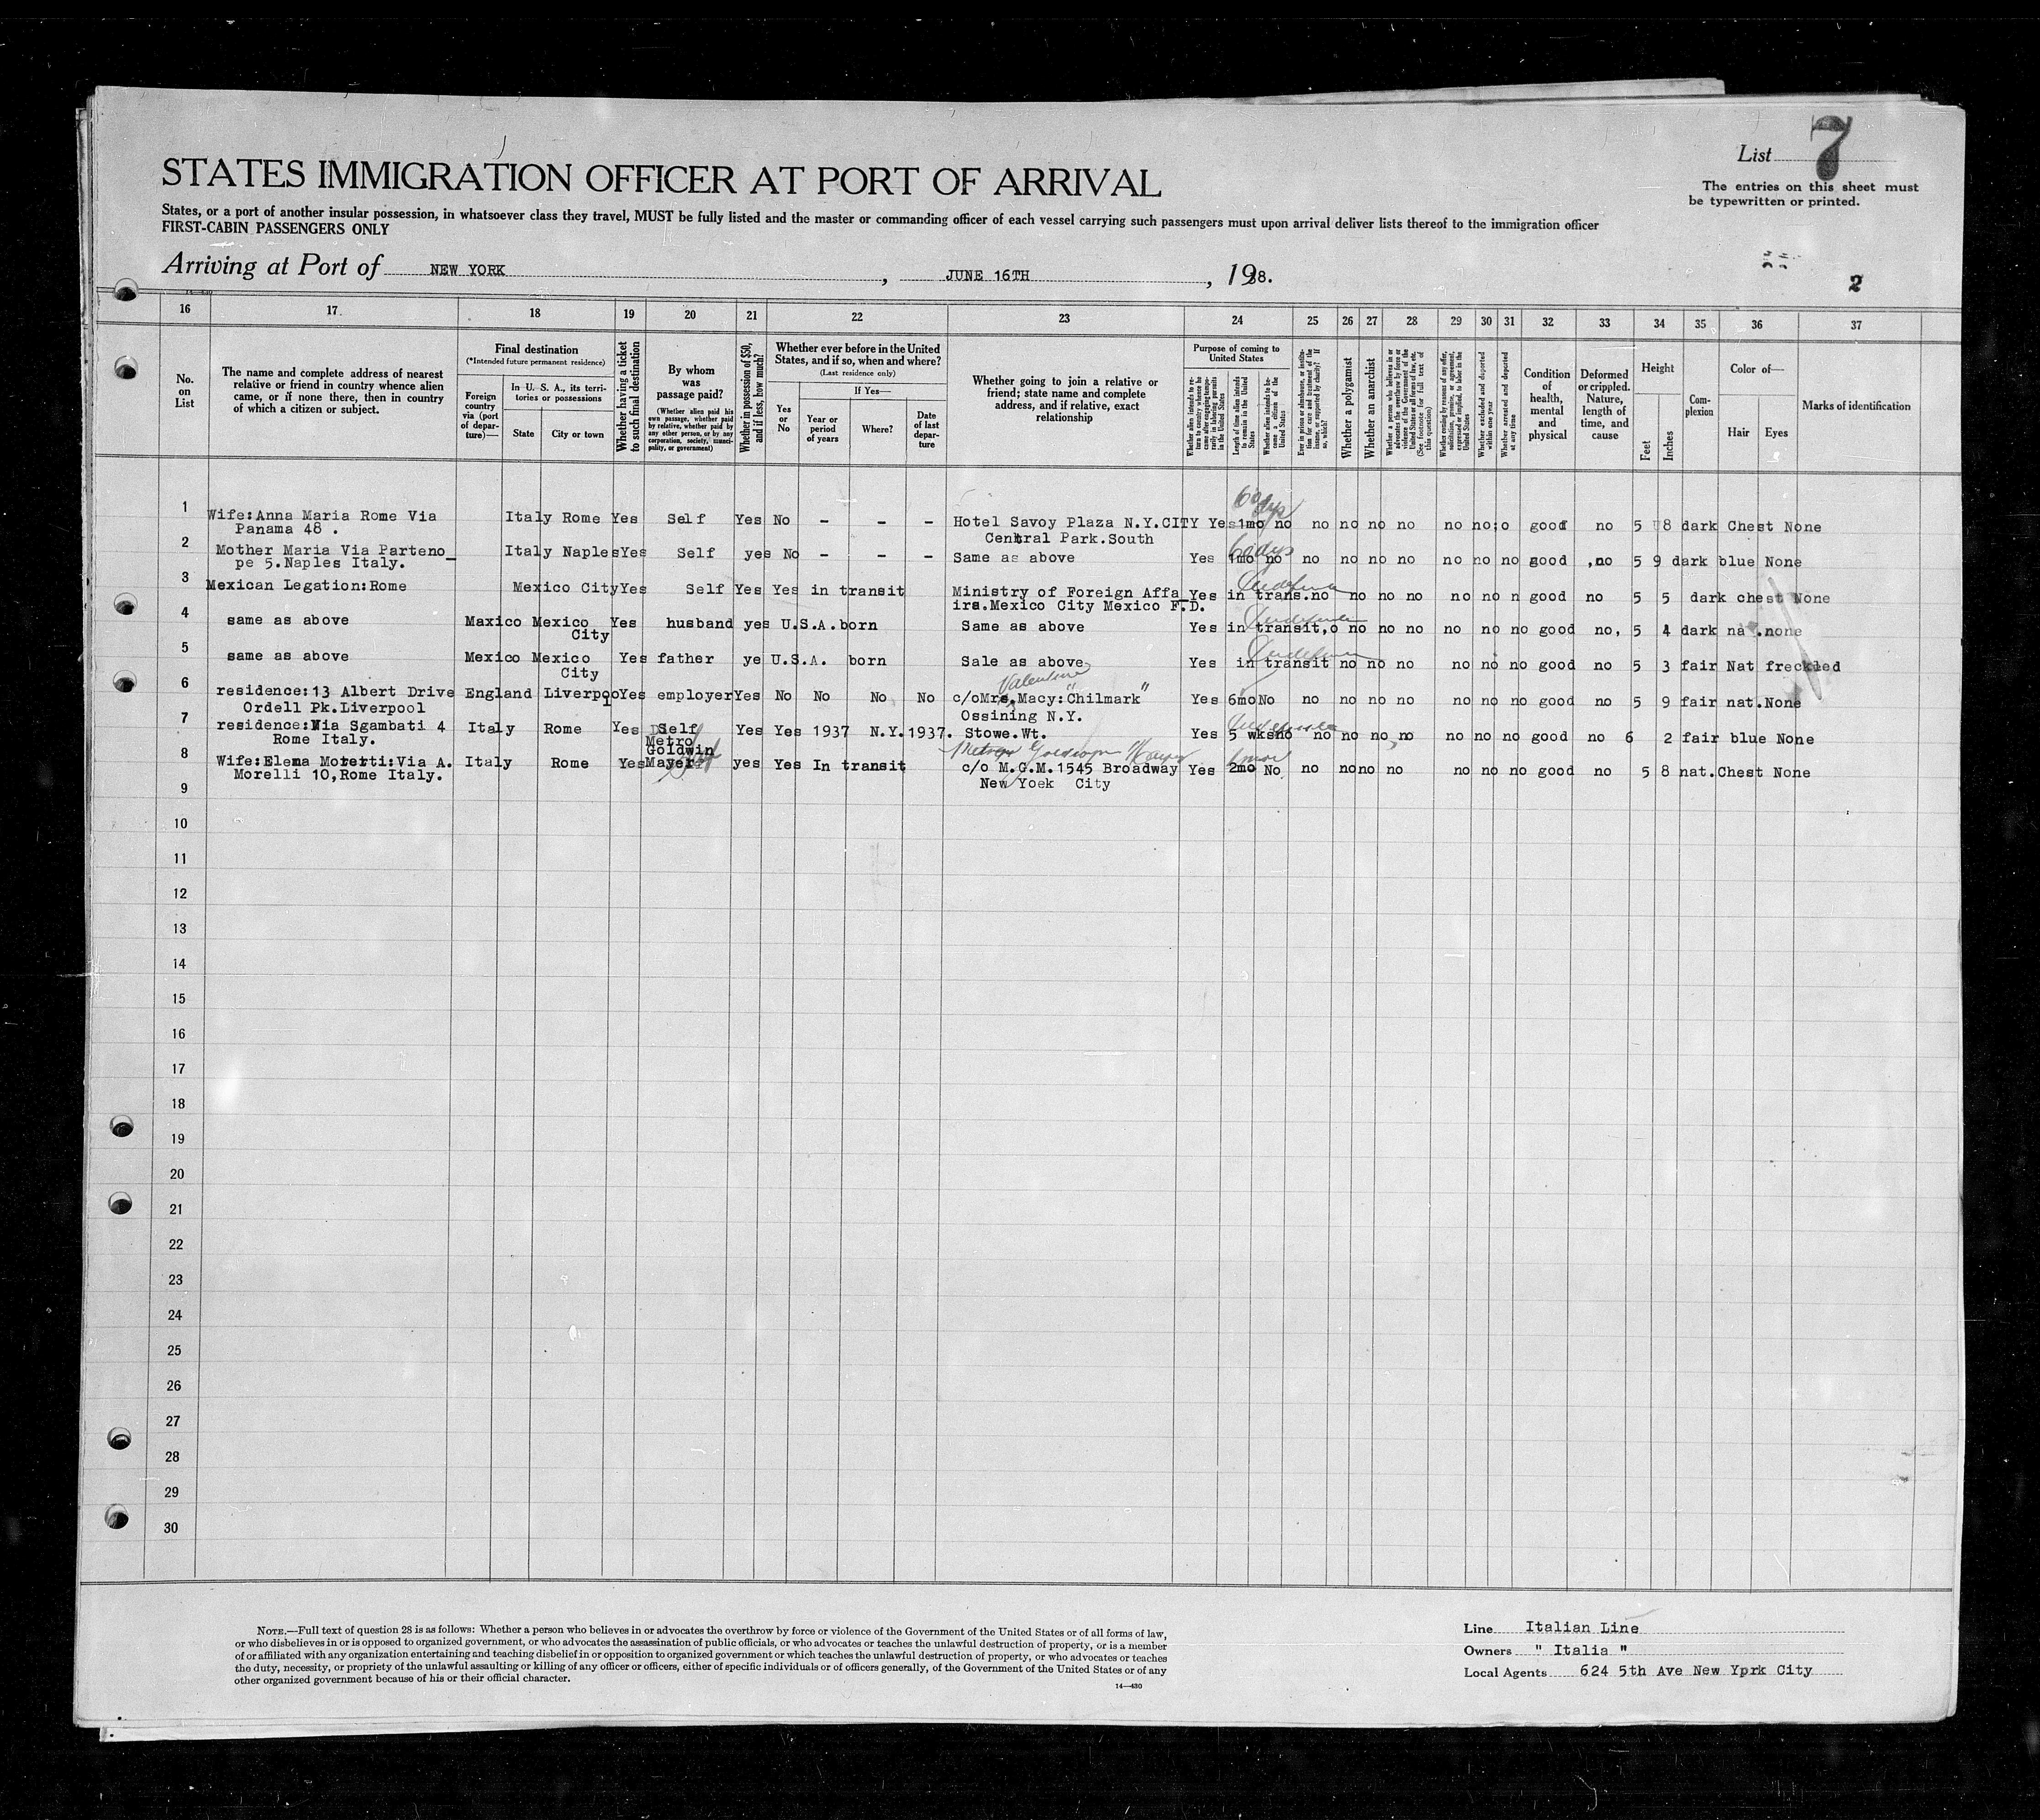 List 7
The entries on this sheet must
be typewritten or printed.
STATES IMMIGRATION OFFICER AT PORT OF ARRIVAL
States, or a port of another insular possession, in whatsoever class they travel, MUST be fully listed and the master or commanding officer of each vessel carrying such passengers must upon arrival deliver lists thereof to the immigration officer
FIRST-CABIN PASSENGERS ONLY
Arriving at Port of NEW YORK, JUNE 16TH, 1938.
2
16 17 18 19 20 21 22 23 24 25 26 27 28 29 30 31 32 33 34 35 36 37
No. on List
The name and complete address of nearest relative or friend in country whence alien came, or if none there, then in country of which a citizen or subject.
Final destination
(*Intended future permanent residence)
Foreign country via (port of departure)—
In U. S. A., its territories or possessions
State
City or town
Whether having a ticket to such final destination
By whom was passage paid?
(Whether alien paid his own passage, whether paid by relative, whether paid by any other person, or by any corporation, society, municipality, or government)
Whether in possession of $50, and if less, how much?
Whether ever before in the United States, and if so, when and where?
(Last residence only)
Yes or No
If Yes—
Year or period of years
Where?
Date of last departure
Whether going to join a relative or friend; state name and complete address, and if relative, exact relationship
Purpose of coming to United States
Whether alien intends to return to country whence he came after engaging temporarily in laboring pursuits in the United States
Length of time alien intends to remain in the United States
Whether alien intends to become a citizen of the United States
Ever in prison or almshouse, or institution for care and treatment of the insane, or supported by charity? If so, which?
Whether a polygamist
Whether an anarchist
Whether a person who believes in or advocates the overthrow by force or violence of the Government of the United States or all forms of law, etc. (See footnote for full text of this question)
Whether coming by reason of any offer, solicitation, promise, or agreement, expressed or implied, to labor in the United States
Whether excluded and deported within one year
Whether arrested and deported at any time
Condition of health, mental and physical
Deformed or crippled. Nature, length of time, and cause
Height
Feet
Inches
Complexion
Color of—
Hair
Eyes
Marks of identification
60 dys
1 Wife:Anna Maria Rome Via Italy Rome Yes Self Yes No - - - Hotel Savoy Plaza N.Y.CITY Yes 1mo no no no no no no no;o good no 5 8 dark Chest None
Panama 48 . Central Park.South
60 dys
2 Mother Maria Via Parteno_ Italy Naples Yes Self yes No - - - Same as above Yes 1mo no no no no no no no no good ,no 5 9 dark blue None
pe 5.Naples Italy.
3 Mexican Legation:Rome Mexico City Yes Self Yes Yes in transit Ministry of Foreign Affa_ Yes in trans.no no no no no no n good no 5 5 dark chest None
irs.Mexico City Mexico F.D.
4 same as above Maxico Mexico Yes husband yes U.S.A.born Same as above Yes in transit,o no no no no no no good no, 5 4 dark na .none
City
5 same as above Mexico Mexico Yes father ye U.S.A. born Sale as above Yes in transit no no no no no no good no 5 3 fair Nat freckled
City
Valentine
6 residence:13 Albert Drive England Liverpool Yes employer Yes No No No No c/oMrs.Macy:"Chilmark" Yes 6mo No no no no no no no no good no 5 9 fair nat.None
Ordell Pk.Liverpool Ossining N.Y.
7 residence:Via Sgambati 4 Italy Rome Yes Self Yes Yes 1937 N.Y. 1937. Stowe.Wt. Yes 5 wks no no no no,no no no no good no 6 2 fair blue None
Rome Italy.
Metro Goldwyn Mayer
8 Wife:Elena Moretti:Via A. Italy Rome Yes Metro Goldwin Mayer yes Yes In transit c/o M.G.M.1545 Broadway Yes 2mo No no no no no no no no good no 5 8 nat.Chest None
Morelli 10,Rome Italy. New Yoek City
9
10
11
12
13
14
15
16
17
18
19
20
21
22
23
24
25
26
27
28
29
30
NOTE.—Full text of question 28 is as follows: Whether a person who believes in or advocates the overthrow by force or violence of the Government of the United States or of all forms of law,
or who disbelieves in or is opposed to organized government, or who advocates the assassination of public officials, or who advocates or teaches the unlawful destruction of property, or is a member
of or affiliated with any organization entertaining and teaching disbelief in or opposition to organized government or which teaches the unlawful destruction of property, or who advocates or teaches
the duty, necessity, or propriety of the unlawful assaulting or killing of any officer or officers, either of specific individuals or of officers generally, of the Government of the United States or of any
other organized government because of his or their official character.
14—430
Line Italian Line
Owners " Italia "
Local Agents 624 5th Ave New Yprk City